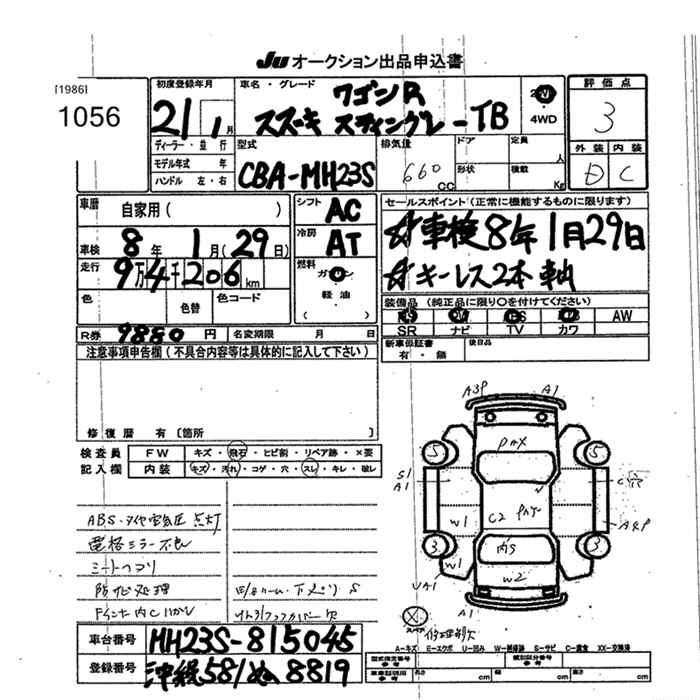 Ju オークション出品申込書
[1986]
1056
初度登録年月
21 1月
車名・グレード
ワゴンR
スズキ スティングレーTB
2WD
4WD
評価点
3
外装 内装
D C
ディーラー・並行
モデル年式 年
ハンドル 左・右
型式
CBA-MH23S
排気量
660 cc
ドア
形状
定員 人
積載 Kg
車歴
自家用( )
車検 8年 1月(29日)
走行 9万4千206km
色
色替
色コード
シフト AC
冷房 AT
燃料
ガソリン
軽油
セールスポイント(正常に機能するものに限ります)
☆車検8年1月29日
☆キーレス2本
装備品(純正品に限り○を付けてください)
AW
SR ナビ TV カワ
R券 9880円 名変期限 月 日
新車保証書
有・無
後日品
注意事項申告欄(不具合内容等は具体的に記入して下さい)
修復歴 有〔箇所
検査員
記入欄
FW キズ・飛石・ヒビ割・リペア跡・×要
内装 キズ・汚れ・コゲ・穴・スレ・キレ・破レ
電格ミラー不良
シートヘコリ
防サビ処理
車台番号 MH23S-815045
登録番号 沖縄581ぬ8819
A3P A1
PAX
5 5
S1
A1
C穴
W1
C2
A4P
内S
3 3
W1
W2
UA1
A1
スペア
A-キズ E-エクボ U-凹み W-補修跡 S-サビ C-腐食 XX-交換済
型式指定番号
参考
類別区分番号
参考
車庫証明用
参考
長さ cm
幅 cm
高さ cm